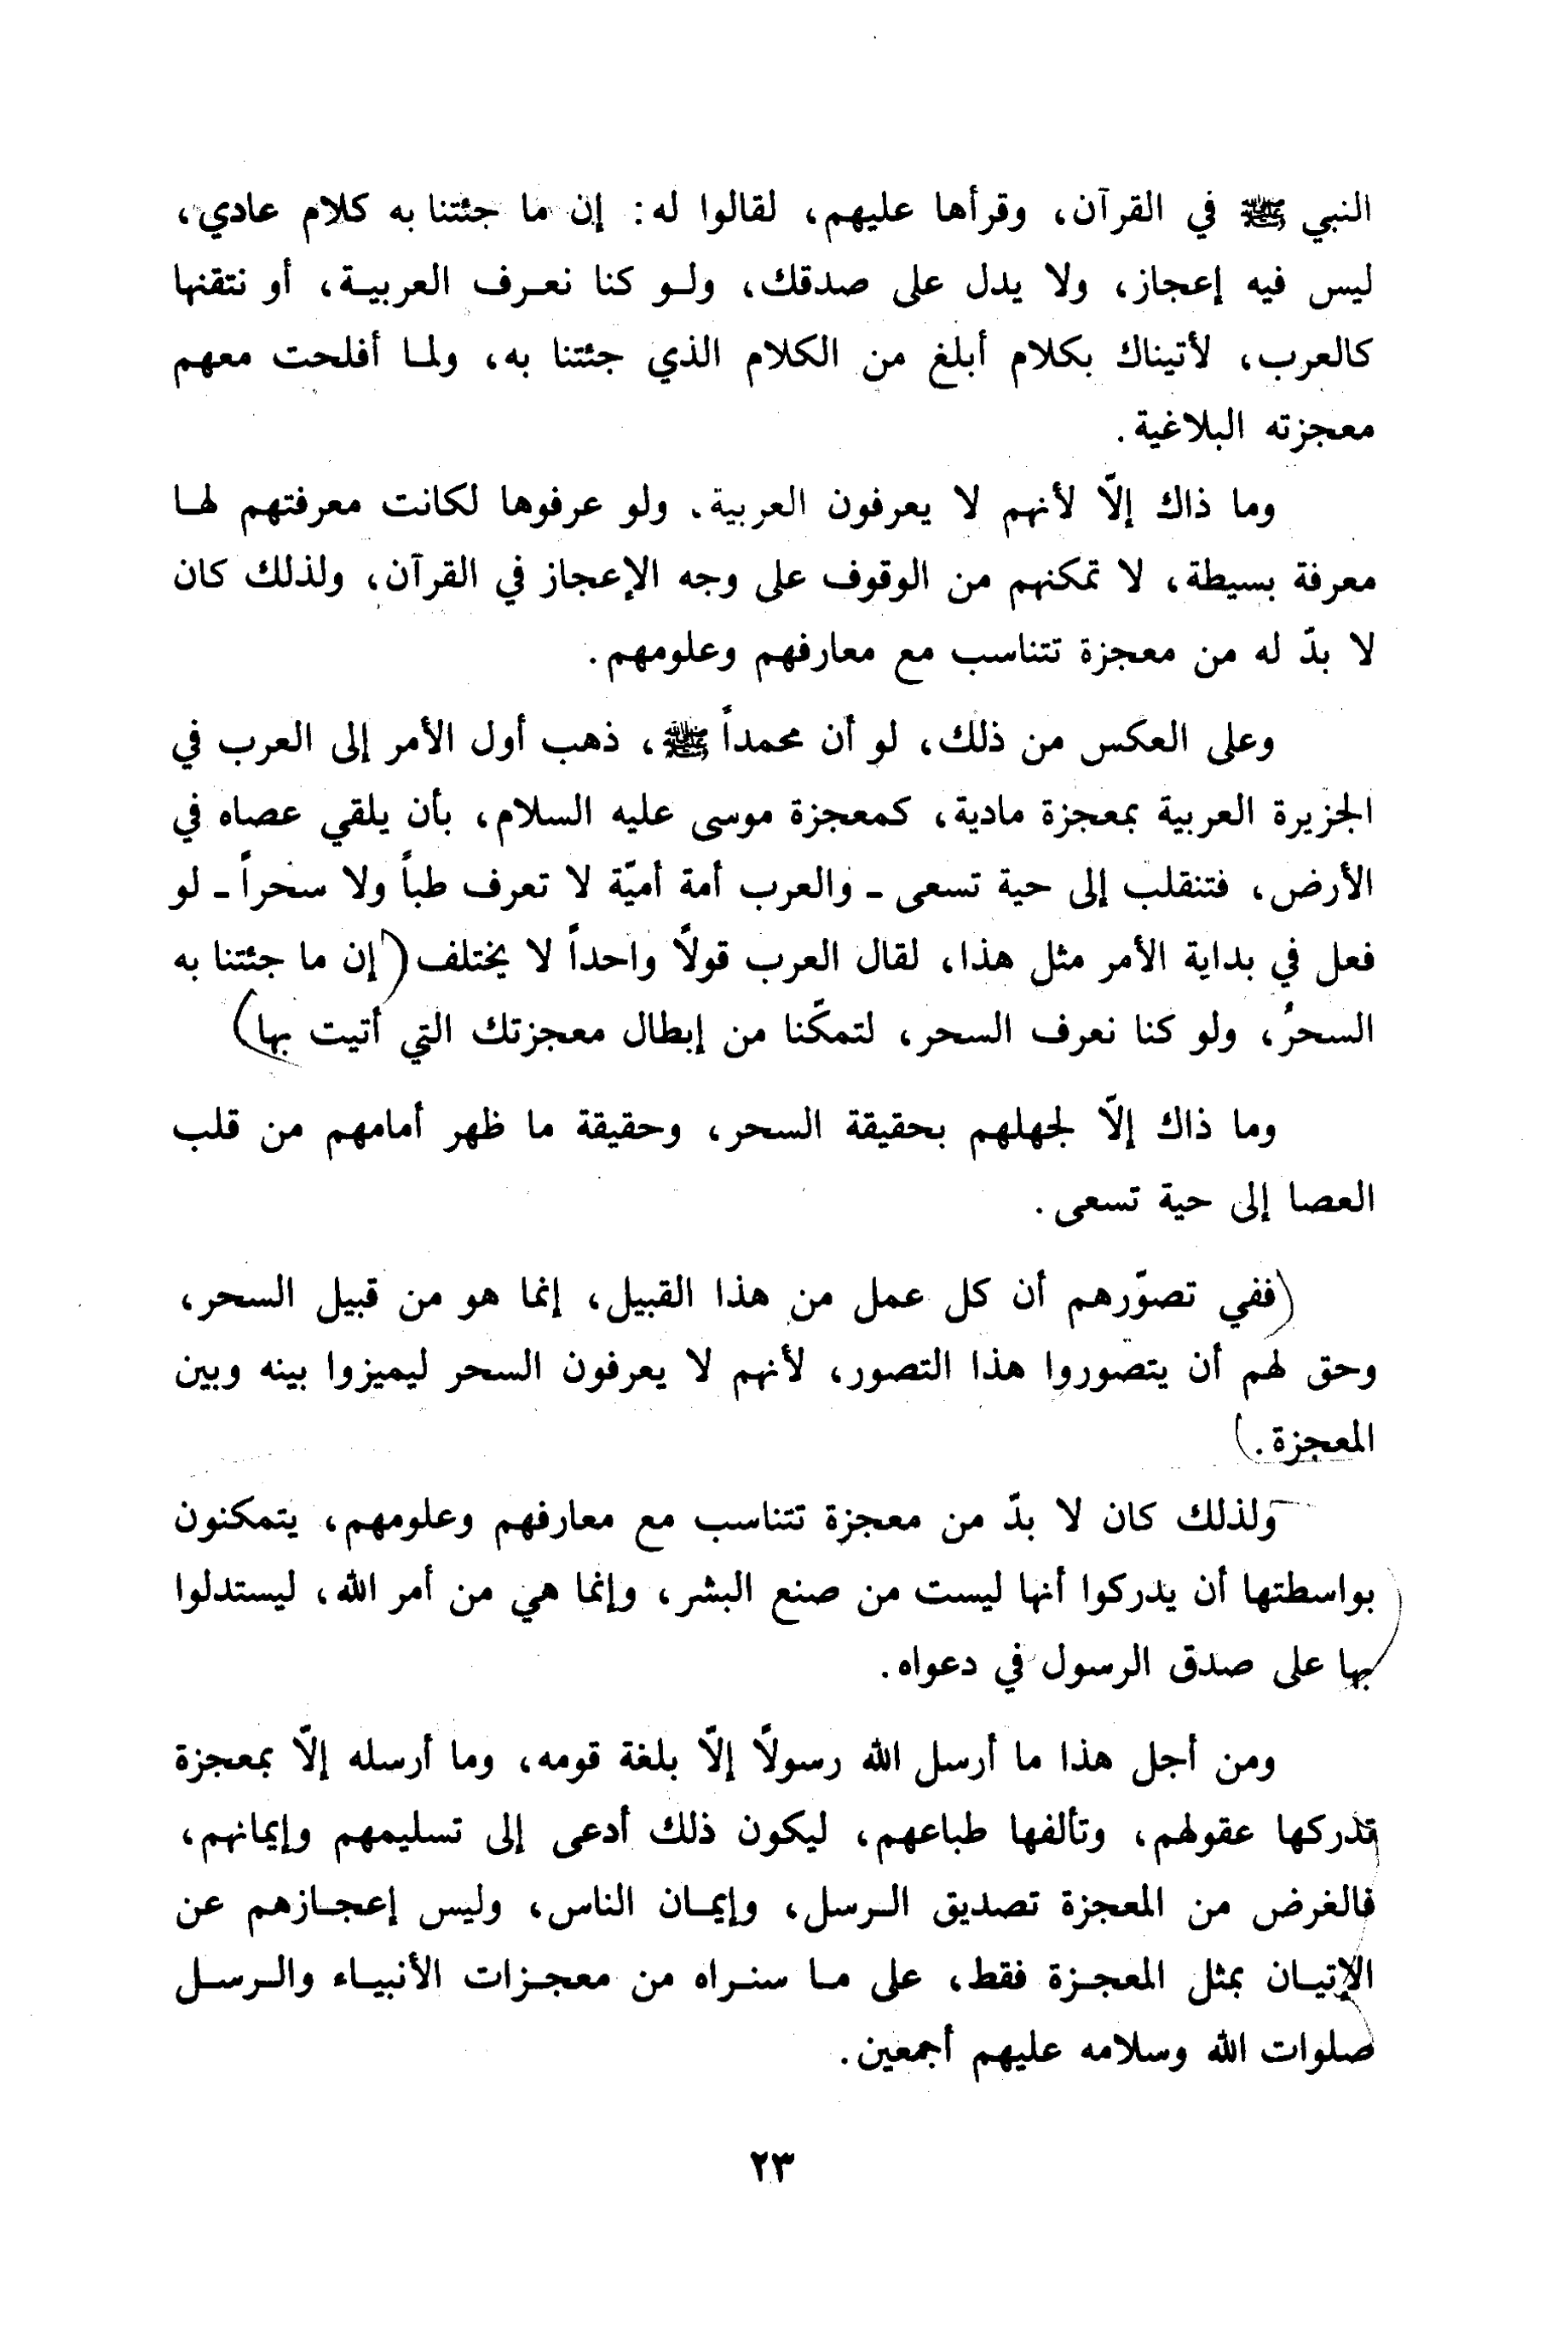 النبي ﷺ في القرآن، وقرأها عليهم، لقالوا له: إن ما جئتنا به كلام عادي،
ليس فيه إعجاز، ولا يدل على صدقك، ولو كنا نعرف العربية، أو نتقنها
كالعرب، لأتيناك بكلام أبلغ من الكلام الذي جئتنا به، ولما أفلحت معهم
معجزته البلاغية.
وما ذاك إلّا لأنهم لا يعرفون العربية. ولو عرفوها لكانت معرفتهم لها
معرفة بسيطة، لا تمكنهم من الوقوف على وجه الإعجاز في القرآن، ولذلك كان
لا بدّ له من معجزة تتناسب مع معارفهم وعلومهم.
وعلى العكس من ذلك، لو أن محمداً ﷺ، ذهب أول الأمر إلى العرب في
الجزيرة العربية بمعجزة مادية، كمعجزة موسى عليه السلام، بأن يلقي عصاه في
الأرض، فتنقلب إلى حية تسعى - والعرب أمة أميّة لا تعرف طباً ولا سحراً - لو
فعل في بداية الأمر مثل هذا، لقال العرب قولًا واحداً لا يختلف (إن ما جئتنا به
السحرُ، ولو كنا نعرف السحر، لتمكّنا من إبطال معجزتك التي أتيت بها)
وما ذاك إلّا لجهلهم بحقيقة السحر، وحقيقة ما ظهر أمامهم من قلب
العصا إلى حية تسعى.
(ففي تصوّرهم أن كل عمل من هذا القبيل، إنما هو من قبيل السحر،
وحق لهم أن يتصوروا هذا التصور، لأنهم لا يعرفون السحر ليميزوا بينه وبين
المعجزة.)
ولذلك كان لا بدّ من معجزة تتناسب مع معارفهم وعلومهم، يتمكنون
بواسطتها أن يدركوا أنها ليست من صنع البشر، وإنما هي من أمر الله، ليستدلوا
بها على صدق الرسول في دعواه.
ومن أجل هذا ما أرسل الله رسولًا إلّا بلغة قومه، وما أرسله إلّا بمعجزة
تدركها عقولهم، وتألفها طباعهم، ليكون ذلك أدعى إلى تسليمهم وإيمانهم،
فالغرض من المعجزة تصديق الرسل، وإيمان الناس، وليس إعجازهم عن
الإتيان بمثل المعجزة فقط، على ما سنراه من معجزات الأنبياء والرسل
صلوات الله وسلامه عليهم أجمعين.
٢٣